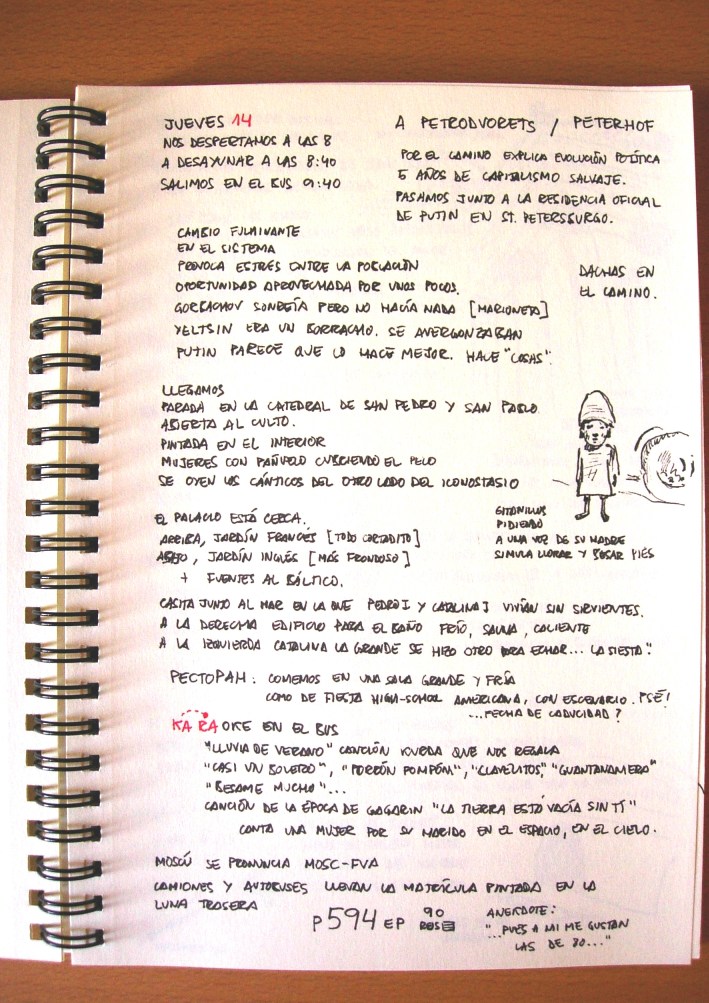 JUEVES 14
NOS DESPERTAMOS A LAS 8
A DESAYUNAR A LAS 8:40
SALIMOS EN EL BUS 9:40
A PETRODVORETS / PETERHOF
POR EL CAMINO EXPLICA EVOLUCIÓN POLÍTICA
5 AÑOS DE CAPITALISMO SALVAJE.
PASAMOS JUNTO A LA RESIDENCIA OFICIAL
DE PUTIN EN ST. PETERSBURGO.
CAMBIO FULMINANTE
EN EL SISTEMA
PROVOCA ESTRÉS ENTRE LA POBLACIÓN
OPORTUNIDAD APROVECHADA POR UNOS POCOS.
GORBACHOV SONREÍA PERO NO HACÍA NADA [MARIONETA]
YELTSIN ERA UN BORRACHO. SE AVERGONZABAN
PUTIN PARECE QUE LO HACE MEJOR. HACE "COSAS".
DACHAS EN
EL CAMINO.
LLEGAMOS
PARADA EN LA CATEDRAL DE SAN PEDRO Y SAN PABLO
ABIERTA AL CULTO.
PINTADA EN EL INTERIOR
MUJERES CON PAÑUELO CUBRIENDO EL PELO
SE OYEN LOS CÁNTICOS DEL OTRO LADO DEL ICONOSTASIO
GITANILLOS
PIDIENDO
A UNA VOZ DE SU MADRE
SIMULA LLORAR Y BESAR PIÉS
EL PALACIO ESTÁ CERCA.
ARRIBA, JARDÍN FRANCÉS [TODO CORTADITO]
ABAJO, JARDÍN INGLÉS [MÁS FRONDOSO]
+ FUENTES AL BÁLTICO.
CASITA JUNTO AL MAR EN LA QUE PEDRO I Y CATALINA I VIVÍAN SIN SIRVIENTES.
A LA DERECHA EDIFICIO PARA EL BAÑO FRÍO, SAUNA, CALIENTE
A LA IZQUIERDA CATALINA LA GRANDE SE HIZO OTRO PARA ECHAR... LA SIESTA".
PECTOPAH: COMEMOS EN UNA SALA GRANDE Y FRÍA
COMO DE FIESTA HIGH-SCHOOL AMERICANA, CON ESCENARIO. PSÉ!
...FECHA DE CADUCIDAD?
KARAOKE EN EL BUS
"LLUVIA DE VERANO" CANCIÓN QUE NOS REGALA
"CASI UN BOLERO", "PORRÓN POMPÓM", "CLAVELITOS", "GUANTANAMERA"
"BESAME MUCHO"...
CANCIÓN DE LA ÉPOCA DE GAGARIN "LA TIERRA ESTÁ VACÍA SIN TÍ"
CANTA UNA MUJER POR SU MARIDO EN EL ESPACIO, EN EL CIELO.
MOSCÚ SE PRONUNCIA MOSC-FVA
CAMIONES Y AUTOBUSES LLEVAN LA MATRÍCULA PINTADA EN LA
LUNA TRASERA
P594EP 90
RUS
ANÉCDOTE:
"...PUES A MI ME GUSTAN
LAS DE 80..."